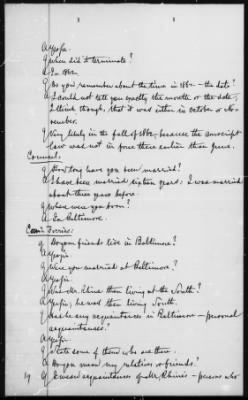 A Yes sir.
Q When did it terminate?
A In 1862.
Q Do you remember about the time in 1862 – the date?
A I could not tell you exactly the month or the date.
I think though, that it was either in October or No-
vember.
Q Very likely in the fall of 1862, because the conscript
law was not in force there earlier than June.
Counsel.
Q How long have you been married?
A I have been married sixteen years: I was married
about three years before
Q Where were you from?
A In Baltimore.
Com'r Ferriss
Q Do your friends live in Baltimore?
A Yes sir.
Q Were you married at Baltimore?
A Yes sir.
Q Was Mr. Rhine then living at the South?
A Yes sir, he was then living South.
Q Has he any acquaintances in Baltimore – personal
acquaintances?
A Yes sir.
Q State some of them who are there.
A Do you mean my relatives or friends?
Q I mean acquaintances of Mr. Rhine's – persons who